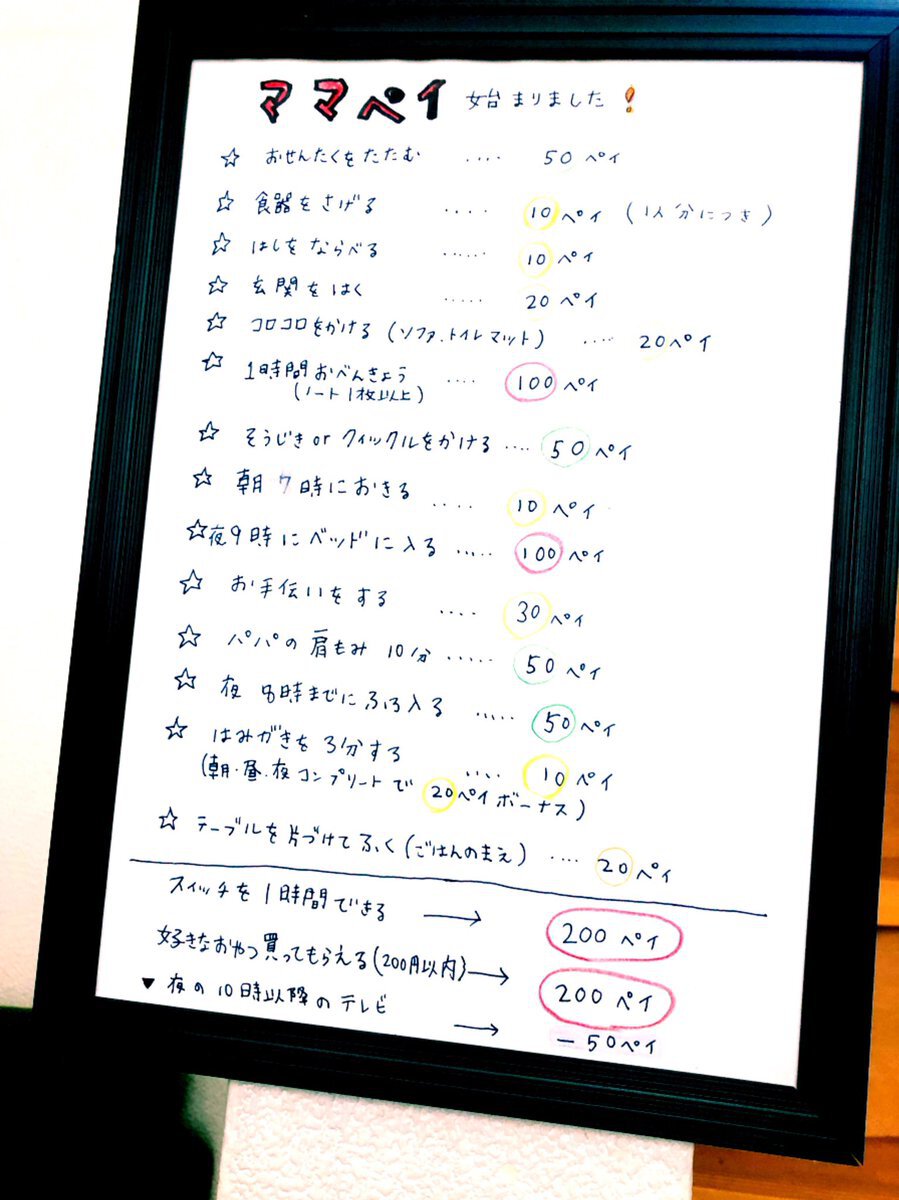 ママペイ 始まりました!
☆ おせんたくをたたむ ‥‥ 50 ペイ
☆ 食器をさげる ‥‥ 10 ペイ (1人分につき)
☆ はしをならべる ‥‥‥ 10 ペイ
☆ 玄関をはく ‥‥‥ 20 ペイ
☆ コロコロをかける (ソファ、トイレマット) ‥‥ 20ペイ
☆ 1時間おべんきょう ‥‥ 100 ペイ
(ノート1枚以上)
☆ そうじき or クイックルをかける ‥‥ 50 ペイ
☆ 朝7時におきる ‥‥ 10 ペイ
☆ 夜9時にベッドに入る ‥‥‥ 100 ペイ
☆ お手伝いをする ‥‥ 30 ペイ
☆ パパの肩もみ 10分 ‥‥‥ 50 ペイ
☆ 夜8時までにふろ入る ‥‥‥ 50 ペイ
☆ はみがきを3分する ‥‥ 10 ペイ
(朝・昼・夜コンプリートで 20ペイボーナス)
☆ テーブルを片づけてふく(ごはんのまえ) ‥‥ 20 ペイ
スイッチを1時間できる → 200 ペイ
好きなおやつ買ってもらえる(200円以内) → 200 ペイ
▼ 夜の10時以降のテレビ → −50ペイ